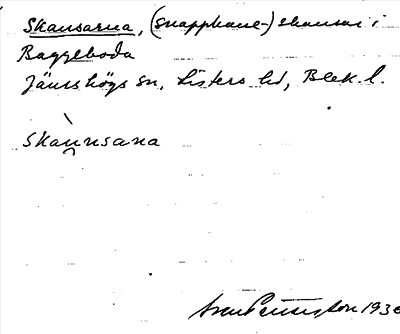 Skansarna, (snapphane-)skansar i
Baggeboda
Jämshögs sn, Listers hd, Blek. l.
skannsana
1930